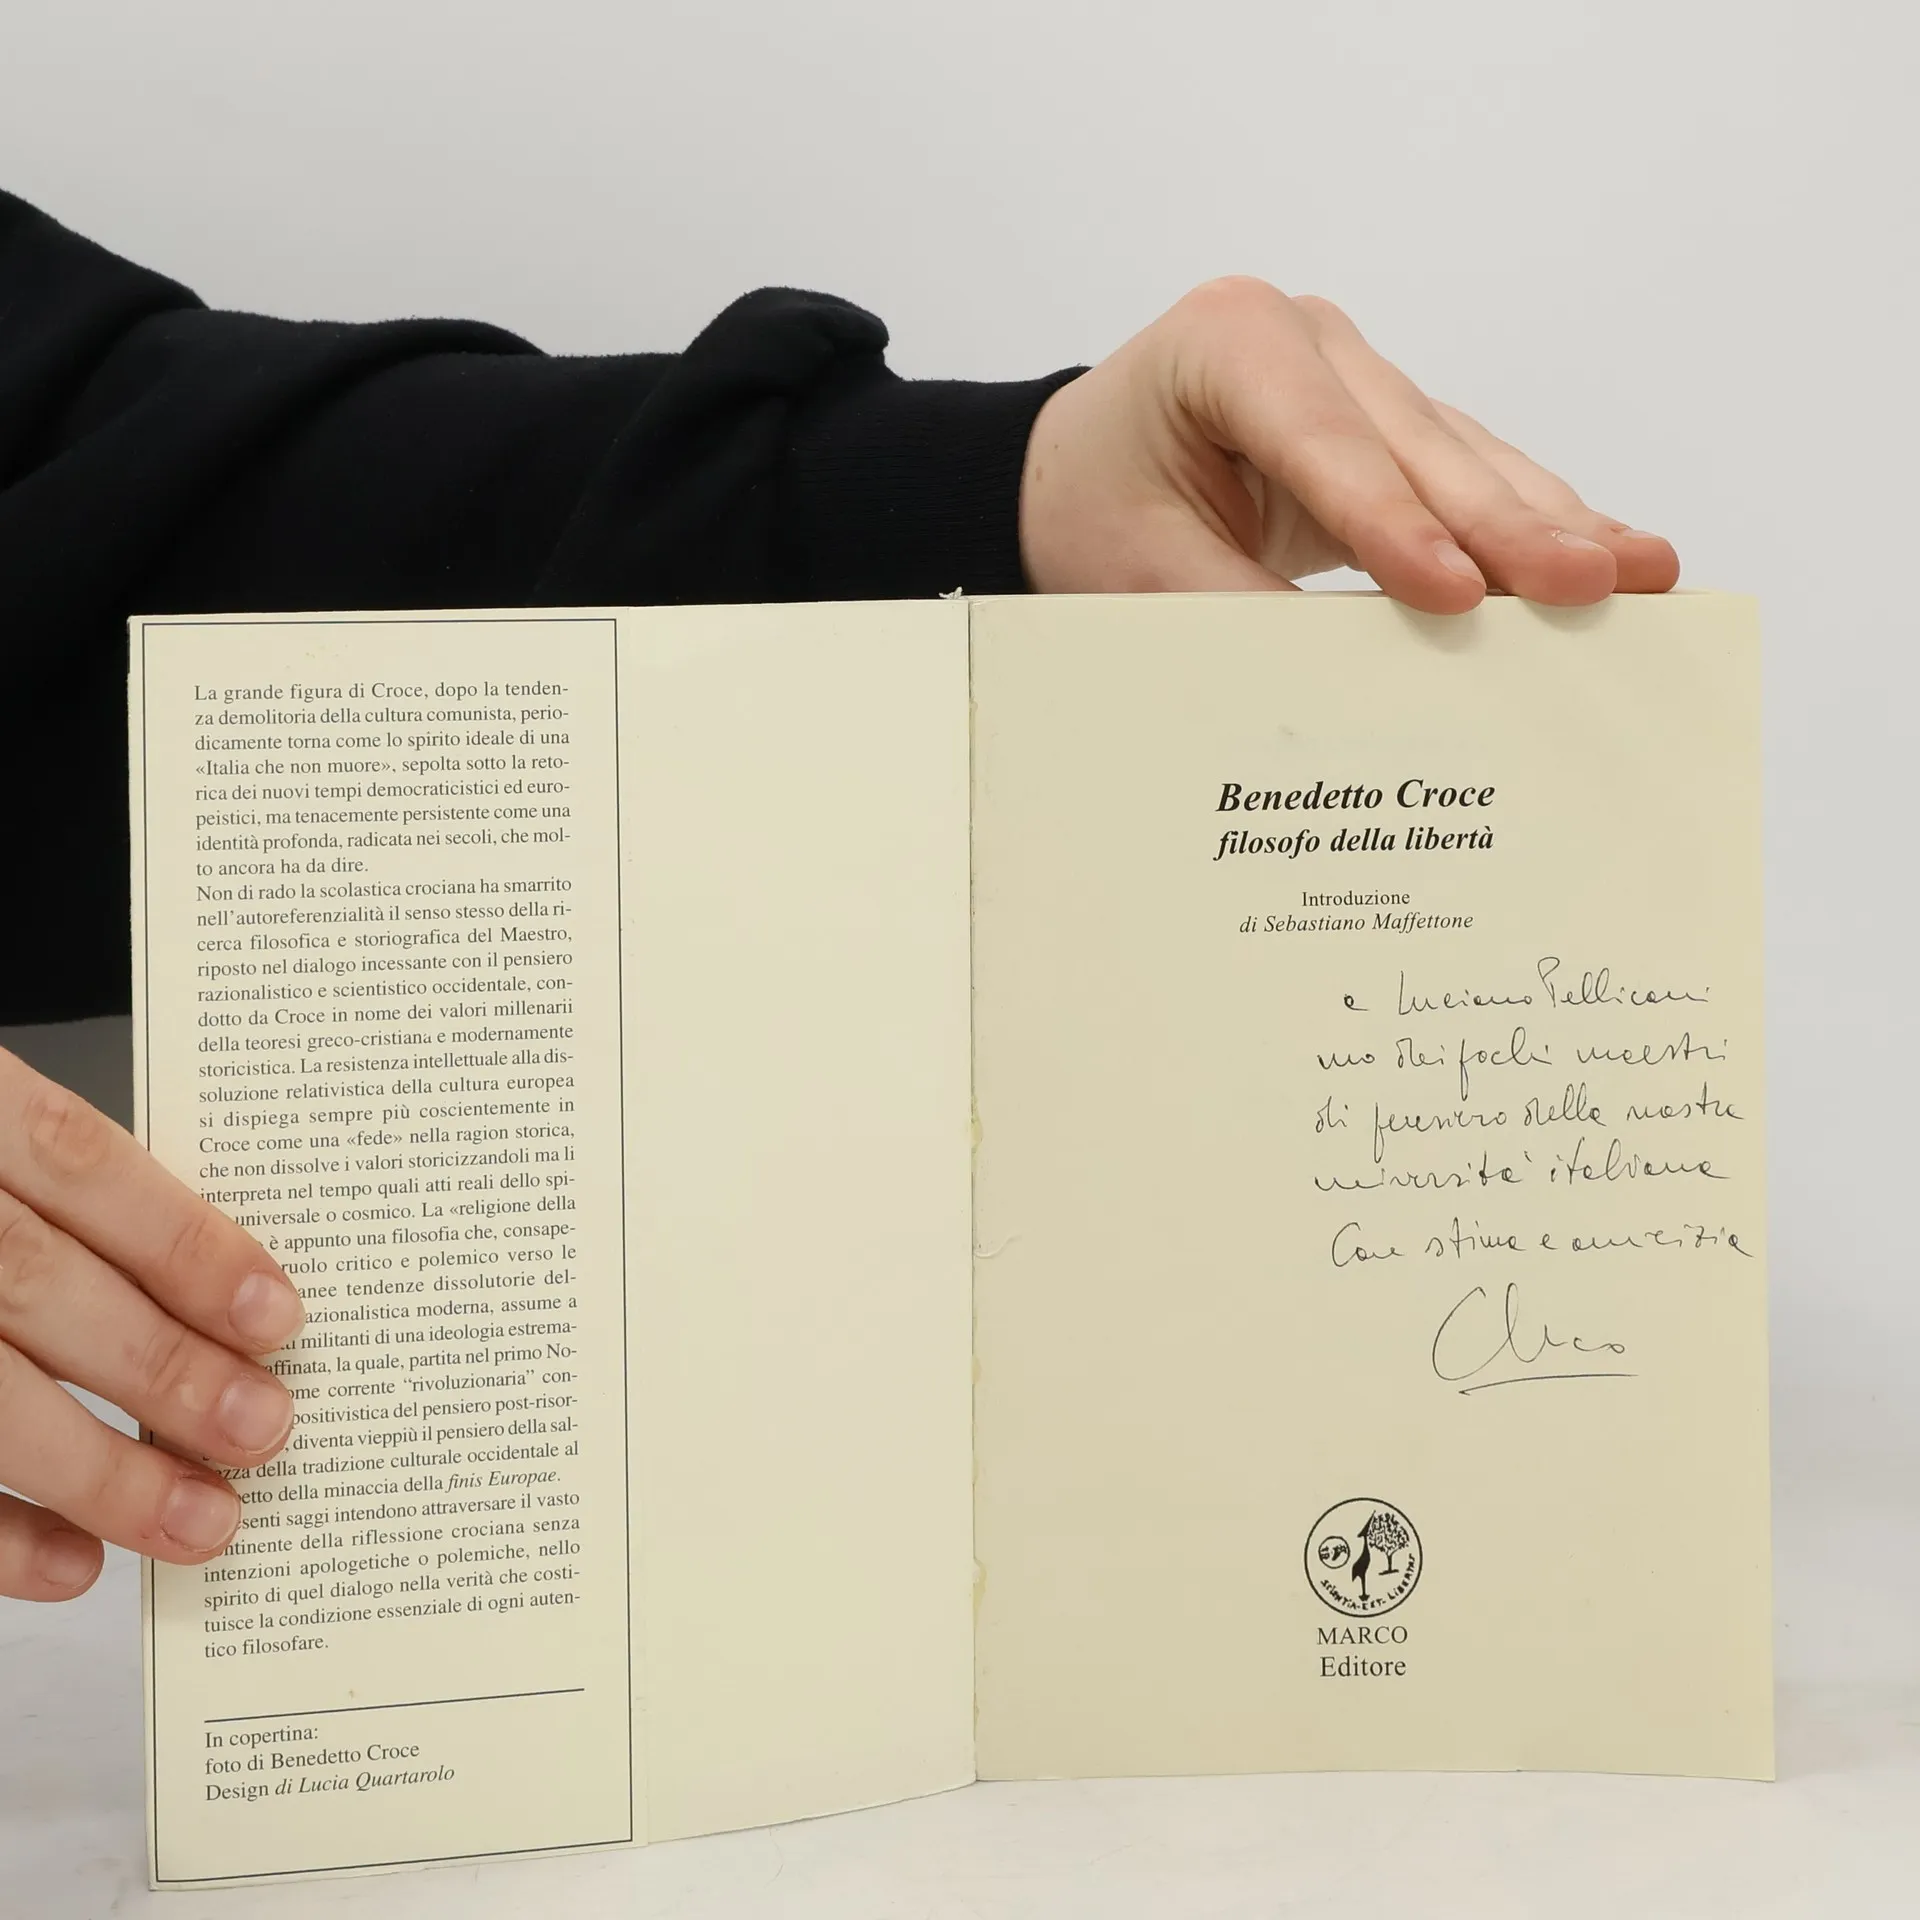 La grande figura di Croce, dopo la tenden-
za demolitoria della cultura comunista, perio-
dicamente torna come lo spirito ideale di una
«Italia che non muore», sepolta sotto la reto-
rica dei nuovi tempi democraticistici ed euro-
peistici, ma tenacemente persistente come una
identità profonda, radicata nei secoli, che mol-
to ancora ha da dire.
Non di rado la scolastica crociana ha smarrito
nell'autoreferenzialità il senso stesso della ri-
cerca filosofica e storiografica del Maestro,
riposto nel dialogo incessante con il pensiero
razionalistico e scientistico occidentale, con-
dotto da Croce in nome dei valori millenarii
della teoresi greco-cristiana e modernamente
storicistica. La resistenza intellettuale alla dis-
soluzione relativistica della cultura europea
si dispiega sempre più coscientemente in
Croce come una «fede» nella ragion storica,
che non dissolve i valori storicizzandoli ma li
interpreta nel tempo quali atti reali dello spi-
universale o cosmico. La «religione della
è appunto una filosofia che, consape-
ruolo critico e polemico verso le
anee tendenze dissolutorie del-
azionalistica moderna, assume a
militanti di una ideologia estrema-
affinata, la quale, partita nel primo No-
ome corrente "rivoluzionaria" con-
positivistica del pensiero post-risor-
, diventa vieppiù il pensiero della sal-
zza della tradizione culturale occidentale al
etto della minaccia della finis Europae.
senti saggi intendono attraversare il vasto
ntinente della riflessione crociana senza
intenzioni apologetiche o polemiche, nello
spirito di quel dialogo nella verità che costi-
tuisce la condizione essenziale di ogni auten-
tico filosofare.
In copertina:
foto di Benedetto Croce
Design di Lucia Quartarolo
Benedetto Croce
filosofo della libertà
Introduzione
di Sebastiano Maffettone
a Luciano Pellicani
uno dei pochi maestri
di pensiero della nostra
università italiana
Con stima e amicizia
SCIENTIA·EST·LIBERTAS
MARCO
Editore